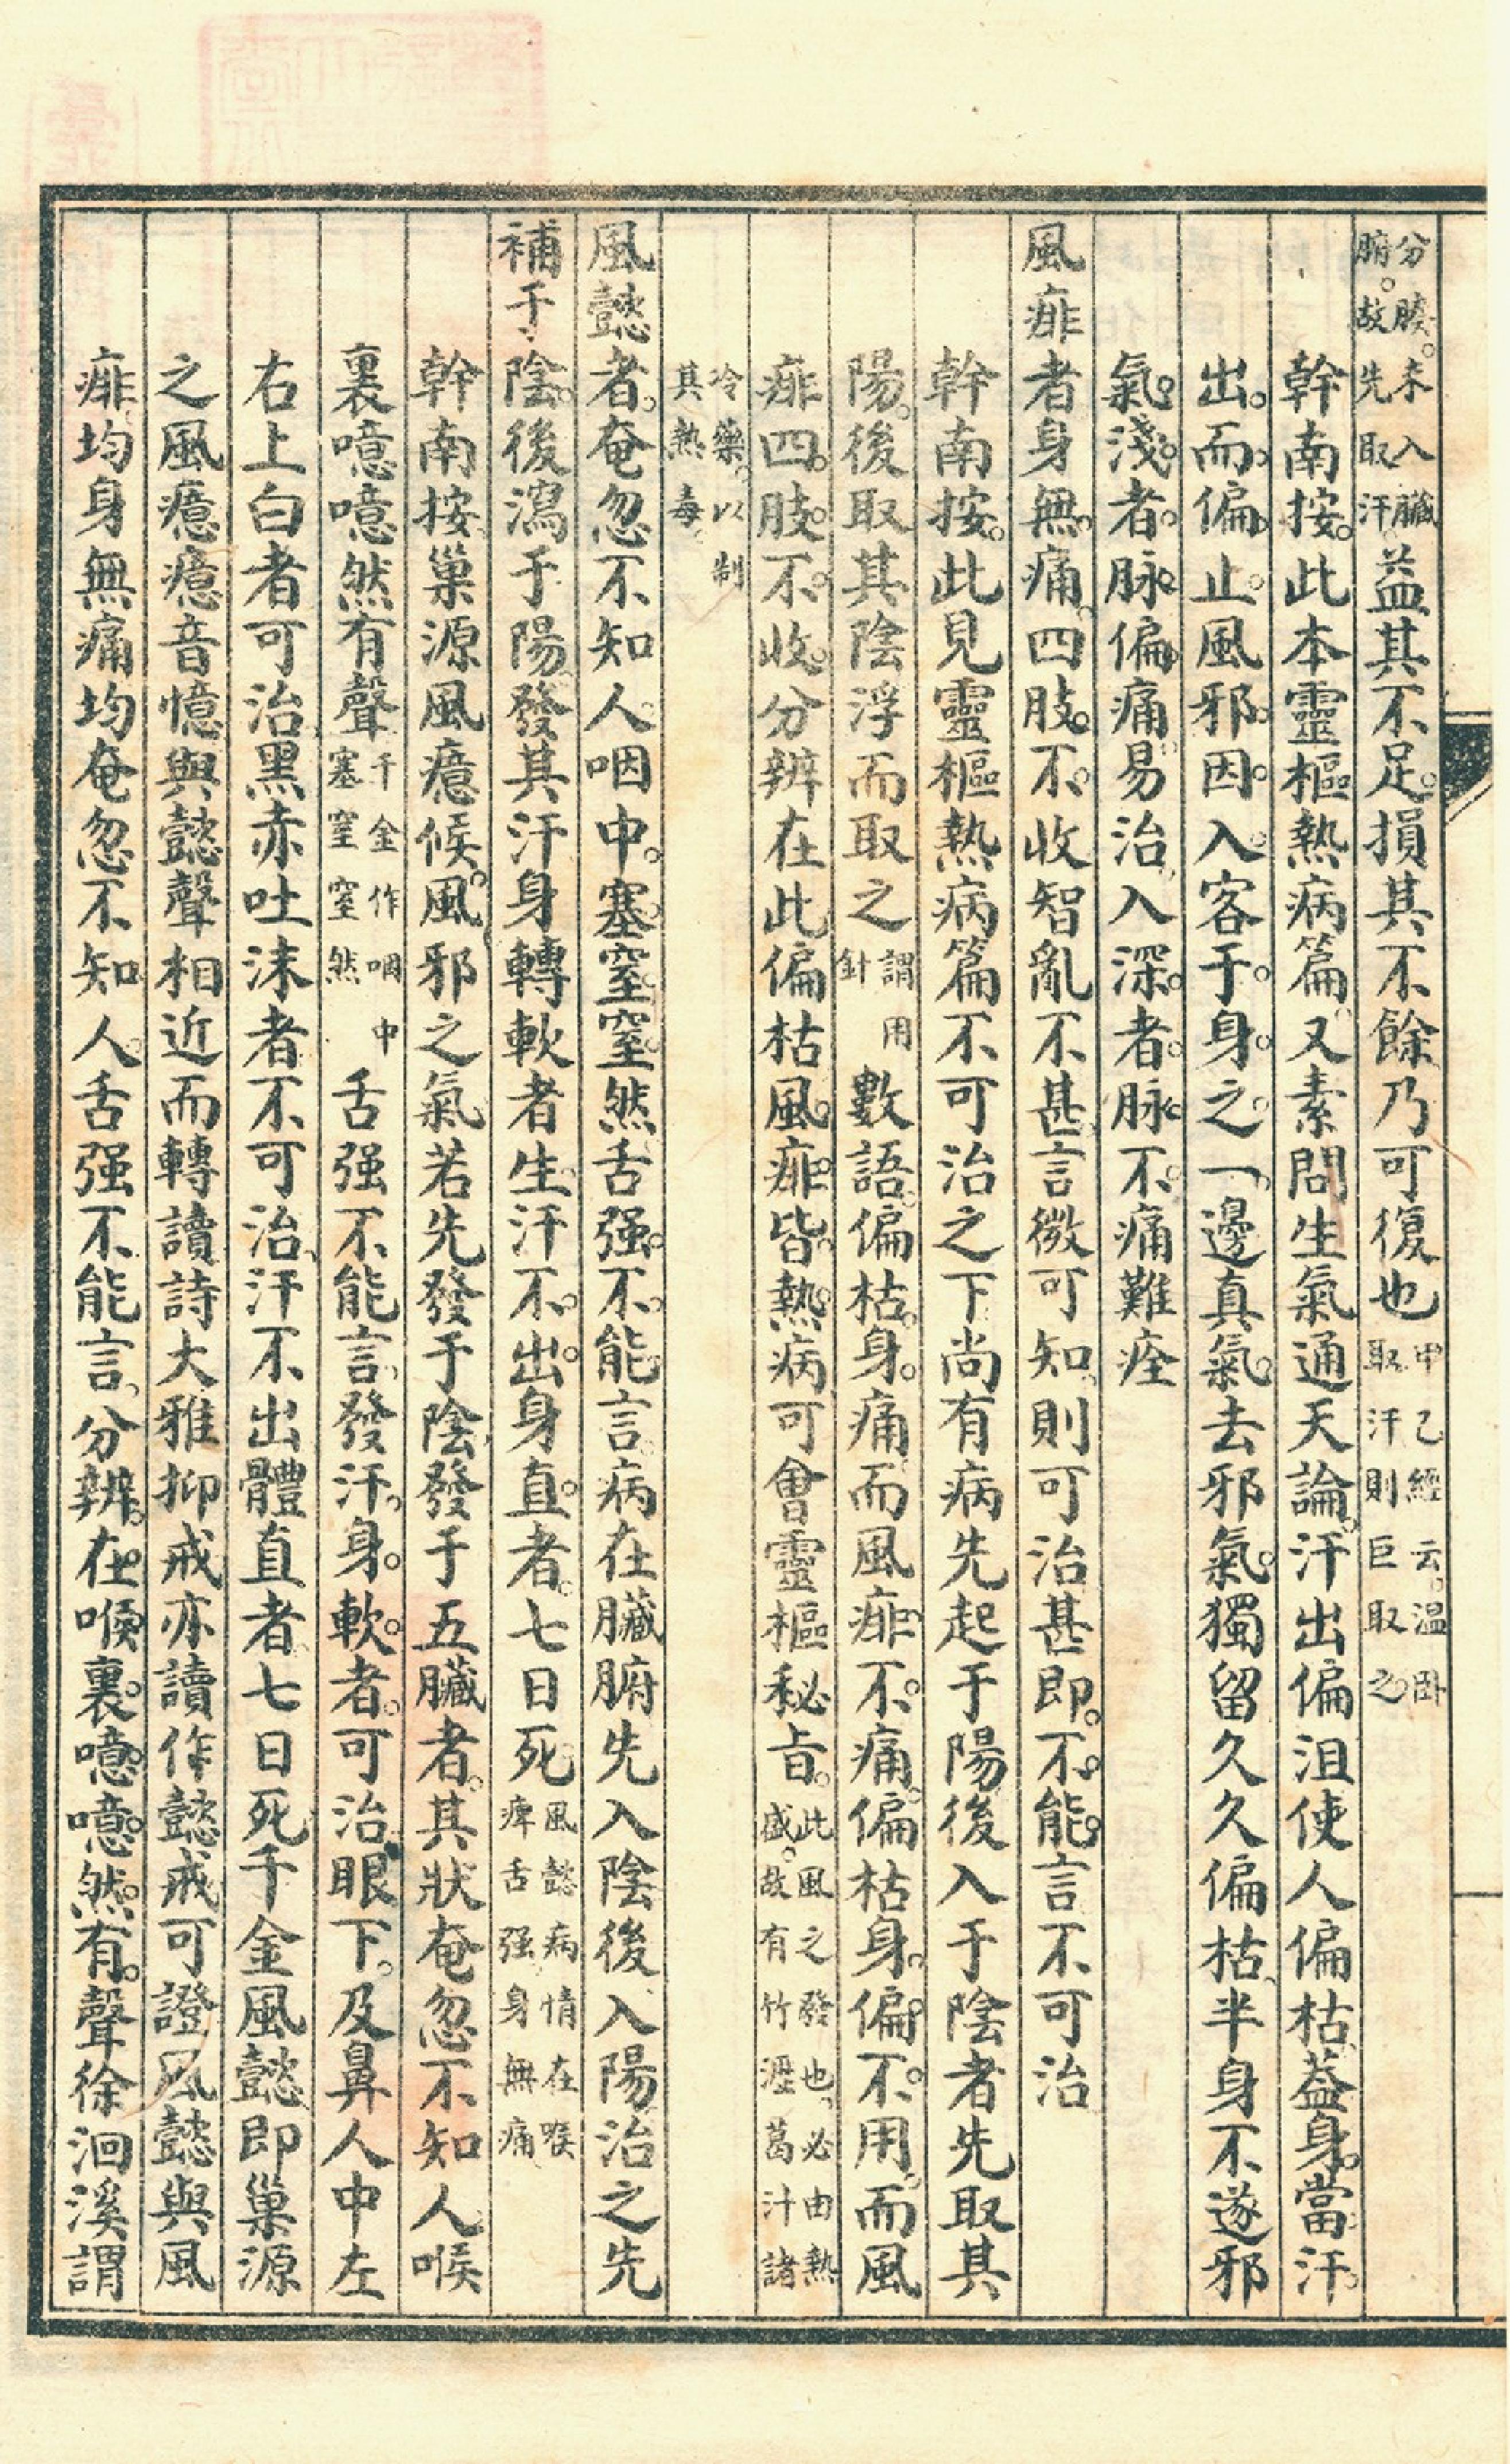 分腠。未入臟腑。故先取汗。益其不足。損其不餘乃可復也甲乙經云。温卧取汗則巨取之。
幹南按。此本靈樞熱病篇。又素問生氣通天論。汗出偏沮使人偏枯。葢身。當汗。
出。而。偏。止。風邪。因。入。客于。身。之。一。邊真氣。去邪氣。獨留久久偏枯、半身不遂邪
氣。淺。者。脉。偏。痛易治、入深。者。脉。不。痛難痊
風痱者身無。痛。四肢。不。收智亂不甚、言微可知、則可治甚即。不。能。言不可治
幹南按。此見靈樞熱病篇不可治之下尚有病先起于陽後入于陰者先取其
陽。後取其陰浮而取之謂用針數語。偏枯。身。痛、而風痱。不。痛。偏枯身。偏。不。用。而風
痱四。肢。不。收。分辨在此偏枯風。痱。皆。熱。病可會靈樞秘旨。此風之發也、必由熱盛。故有竹瀝葛汁諸
冷藥。以制其熱毒。
風懿者。奄忽不知人。咽中。塞。窒。窒。然舌强。不。能。言。病在臟腑先入陰後入陽治之先
補于陰。後瀉于陽。發其汗身轉軟者生。汗不。出。身直。者。七日死。風懿病情在喉痺舌强身無痛
幹南按、巢源風癔候。風邪之氣若先發于陰、發于五臟者。其狀奄忽不知人喉
裏噫噫然有聲千金作咽中塞窒窒然舌强不能言、發汗。身。軟。者。可治、眼下。及鼻人中左
右上白者可治、黑赤吐沫者不可治、汗不出體直者、七日死千金風懿即巢源
之風癔癔音憶與懿聲相近而轉讀詩大雅抑戒亦讀作懿戒可證風懿與風
痱、均身無痛均奄忽不知人。舌强不能言、分辨。在。喉。裏。噫。噫。然。有。聲徐洄溪謂